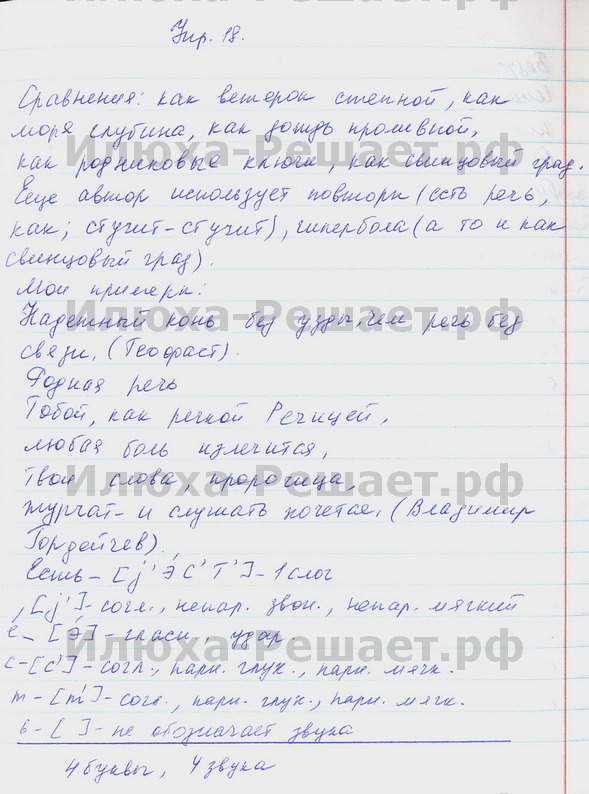 Упр. 18.
Сравнения: как ветерок степной, как
моря глубина, как дождь проливной,
как родниковые ключи, как свинцовый град.
Еще автор использует повторы (есть речь,
как; стучит-стучит), гипербола (а то и как
свинцовый град).
Мои примеры:
Надежный конь без узды, чем речь без
связи. (Теофраст).
Родная речь
Тобой, как речкой Речицей,
любая боль излечится,
Твои слова, пророчица,
журчат- и слушать хочется. (Владимир
Гордейчев).
Есть - [j' Э С' Т'] - 1 слог
[j'] - согл., непар. звон., непар. мягкий
е - [Э] - гласн., удар.
с - [с'] - согл., парн. глух., парн. мягк.
т - [т'] - согл., парн. глух., парн. мягк.
ь - [ ] - не обозначает звука
4 буквы, 4 звука
Илюха-Решает.рф
Илюха-Решает.рф
Илюха-Решает.рф
Илюха-Решает.рф